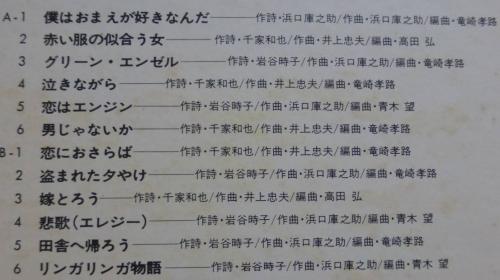 A-1 僕はおまえが好きなんだ――作詩・浜口庫之助/作曲・浜口庫之助/編曲・竜崎孝路
2 赤い服の似合う女――作詩・千家和也/作曲・井上忠夫/編曲・高田 弘
3 グリーン・エンゼル――作詩・岩谷時子/作曲・浜口庫之助/編曲・竜崎孝路
4 泣きながら――作詩・千家和也/作曲・井上忠夫/編曲・竜崎孝路
5 恋はエンジン――作詩・岩谷時子/作曲・浜口庫之助/編曲・青木 望
6 男じゃないか――作詩・千家和也/作曲・井上忠夫/編曲・竜崎孝路
B-1 恋におさらば――作詩・千家和也/作曲・井上忠夫/編曲・竜崎孝路
2 盗まれた夕やけ――作詩・岩谷時子/作曲・浜口庫之助/編曲・竜崎孝路
3 嫁とろう――作詩・千家和也/作曲・井上忠夫/編曲・高田 弘
4 悲歌(エレジー)――作詩・岩谷時子/作曲・浜口庫之助/編曲・青木 望
5 田舎へ帰ろう――作詩・岩谷時子/作曲・浜口庫之助/編曲・竜崎孝路
6 リンガリンガ物語――作詩・岩谷時子/作曲・浜口庫之助/編曲・青木 望